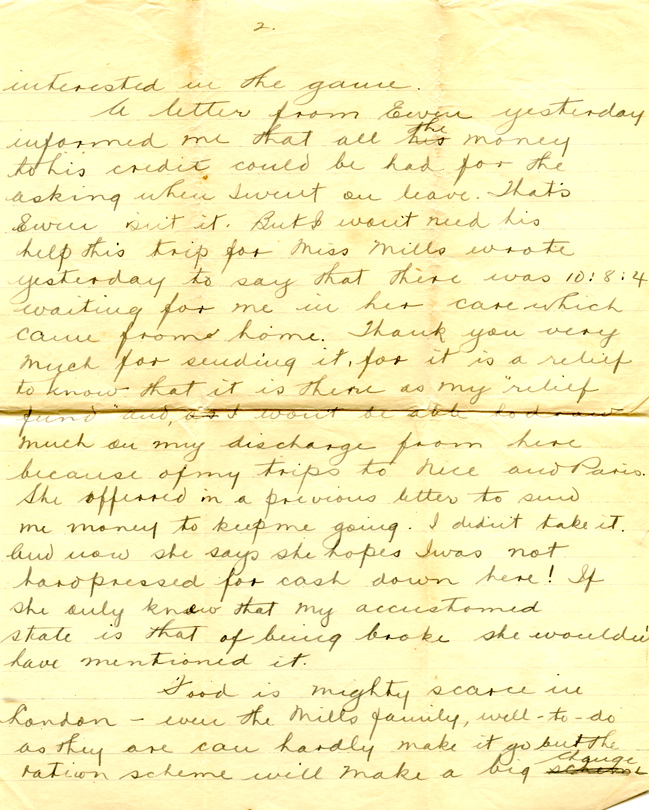 2.
interested in the game.
A letter from Ewen yesterday
informed me that all the his money
to his credit could be had for the
asking when I went on leave. That's
Ewen isn't it. But I won't need his
help this trip for Miss Mills wrote
yesterday to say that there was 10:8:4
waiting for me in her care which
came from home. Thank you very
much for sending it, for it is a relief
to know that it is there as my "relief
fund" and, as I won't be able to draw
much on my discharge from here
because of my trips to Nice and Paris.
She offerred in a previous letter to send
me money to keep me going. I didn't take it.
And now she says she hopes I was not
hardpressed for cash down here! If
she only knew that my accustomed
state is that of being broke she wouldn't
have mentioned it.
Food is mighty scarce in
London – even the Mills family, well-to-do
as they are can hardly make it go but the
ration scheme will make a big scheme change